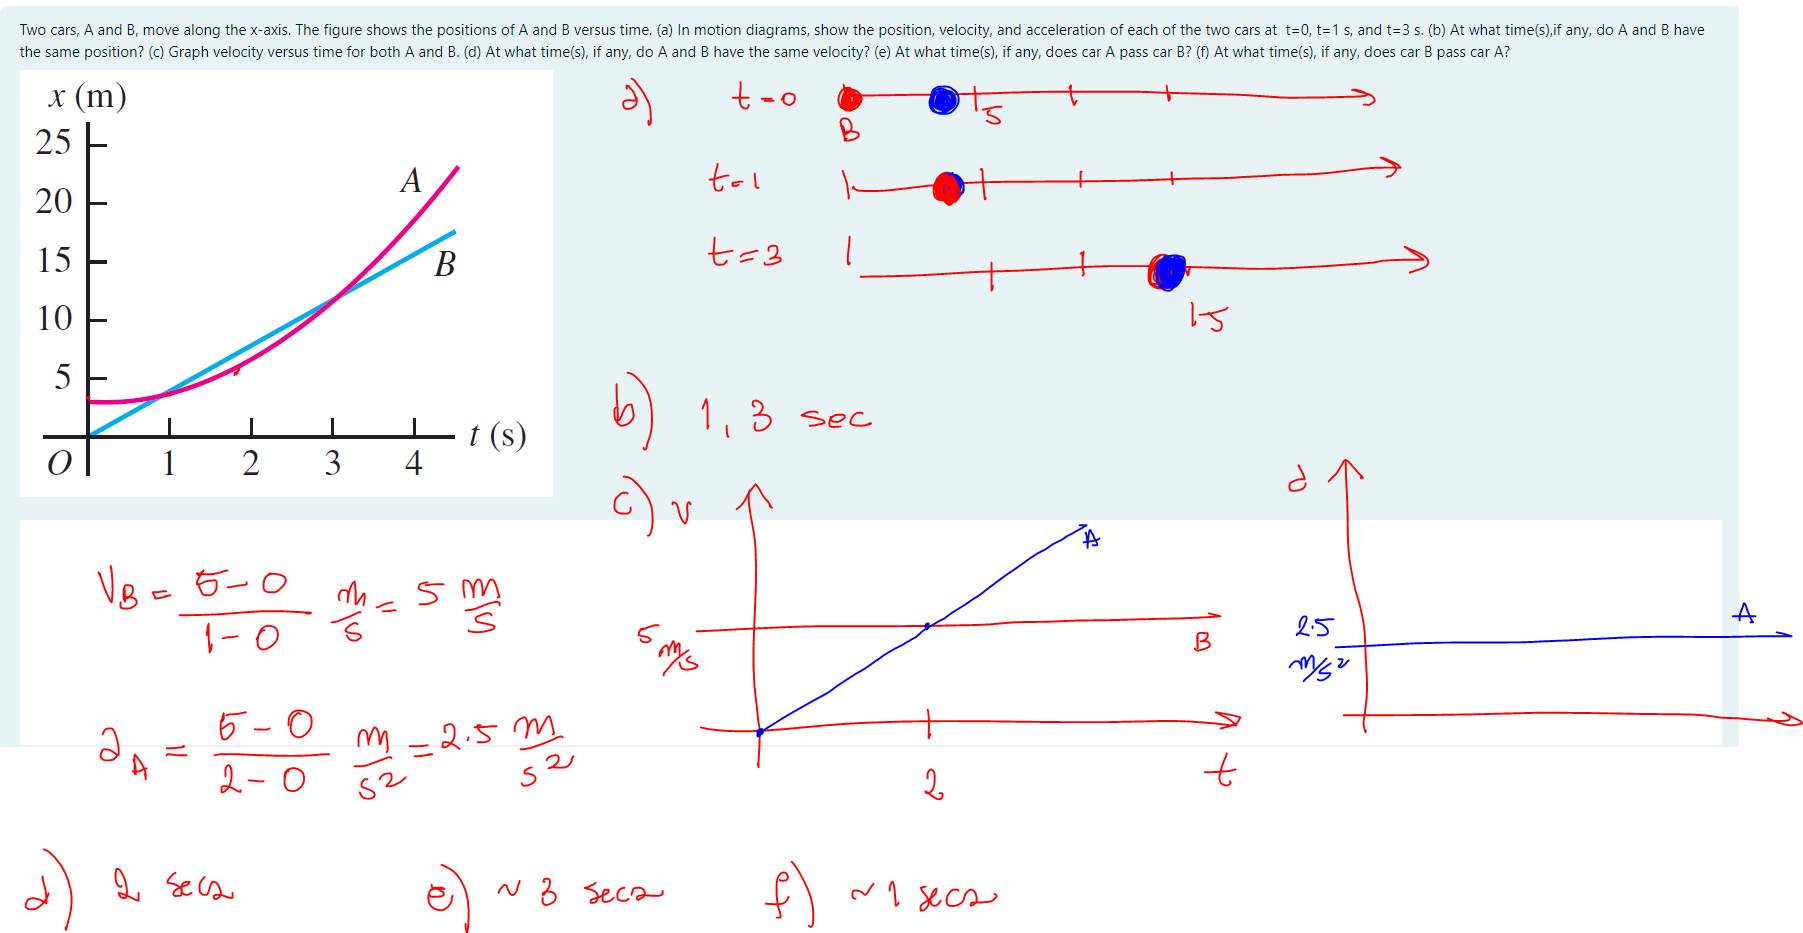 Two cars, A and B, move along the x-axis. The figure shows the positions of A and B versus time. (a) In motion diagrams, show the position, velocity, and acceleration of each of the two cars at t=0, t=1 s, and t=3 s. (b) At what time(s),if any, do A and B have
the same position? (c) Graph velocity versus time for both A and B. (d) At what time(s), if any, do A and B have the same velocity? (e) At what time(s), if any, does car A pass car B? (f) At what time(s), if any, does car B pass car A?
x (m)
25
20
15
10
5
O
1 2 3 4
t (s)
A
B
a) t=0
B
5
t=1
t=3
15
b) 1, 3 sec
c) v
A
5 m/s
B
2
t
a
2.5 m/s²
A
V_B = (5-0)/(1-0) m/s = 5 m/s
a_A = (5-0)/(2-0) m/s² = 2.5 m/s²
d) 2 secs
e) ~ 3 secs
f) ~ 1 secs